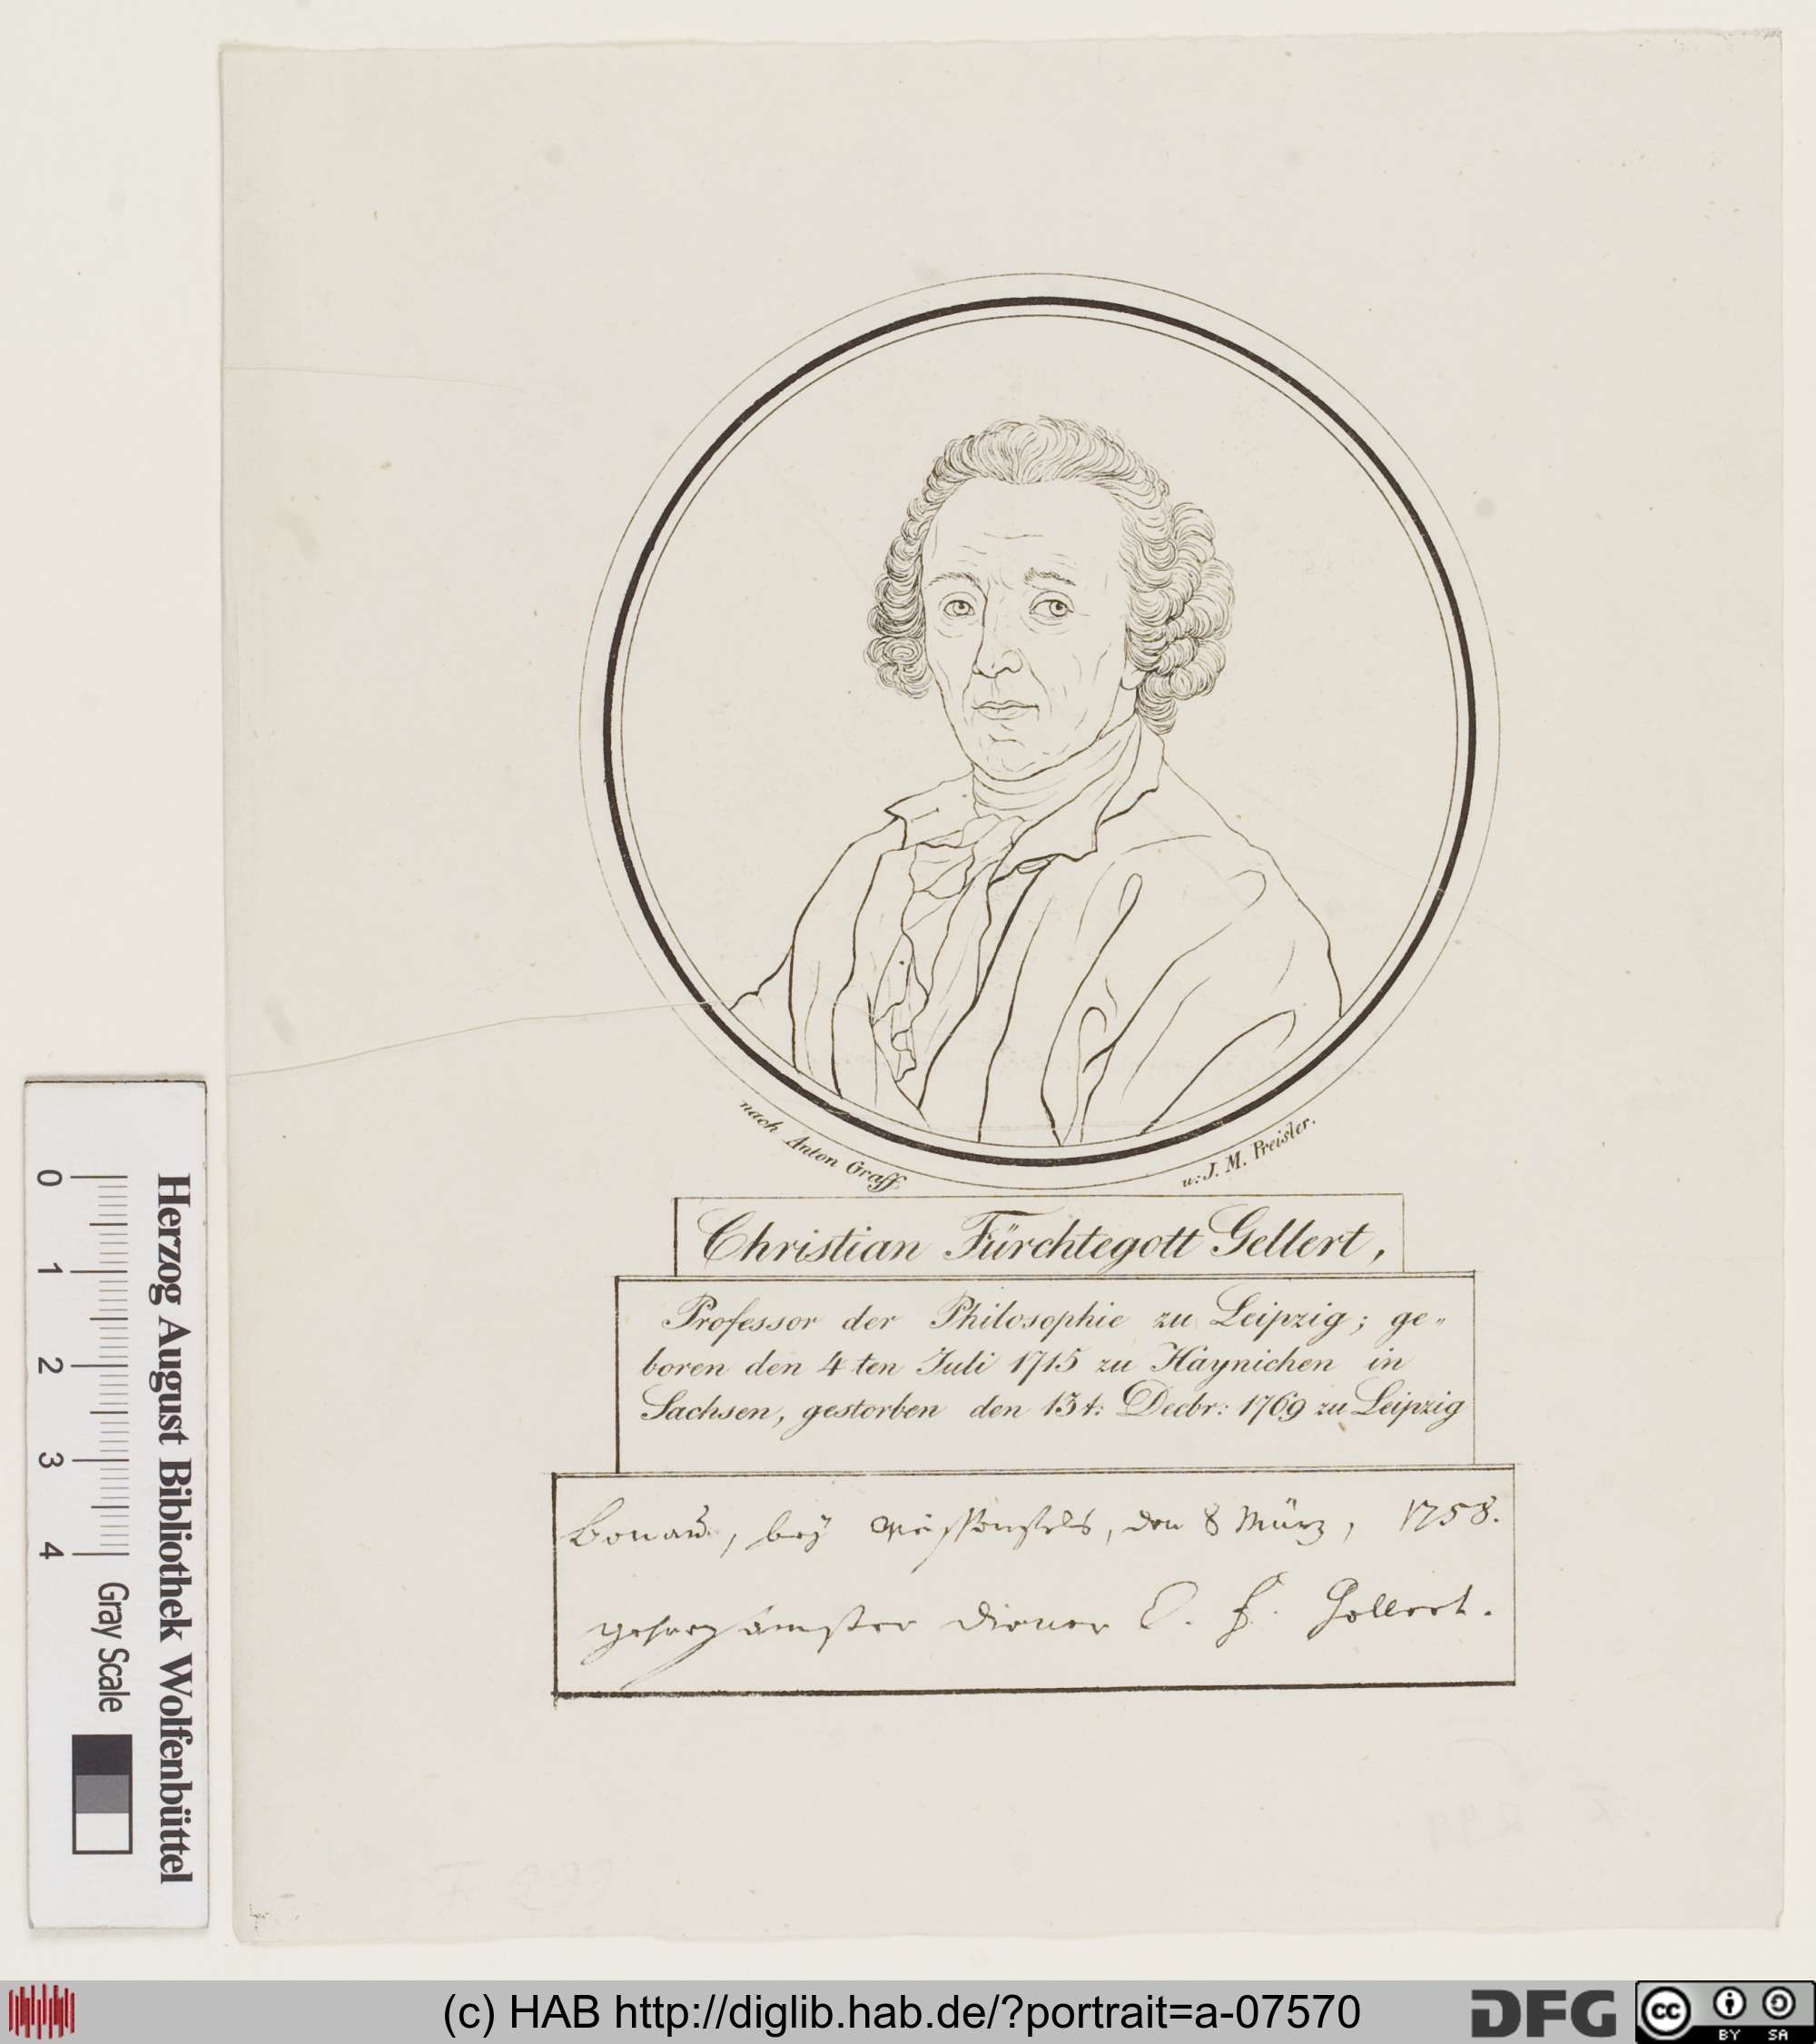 nach Anton Graff
u: J. M. Preisler.
Christian Fürchtegott Gellert,
Professor der Philosophie zu Leipzig; ge„
boren den 4 ten Juli 1715 zu Haynichen in
Sachsen, gestorben den 13 t: Decbr: 1769 zu Leipzig
Bonau, bey Weissenfels, den 8 März, 1758.
gehorsamster Diener C. F. Gellert.
Herzog August Bibliothek Wolfenbüttel
0 1 2 3 4 Gray Scale
(c) HAB http://diglib.hab.de/?portrait=a-07570
DFG
cc BY SA